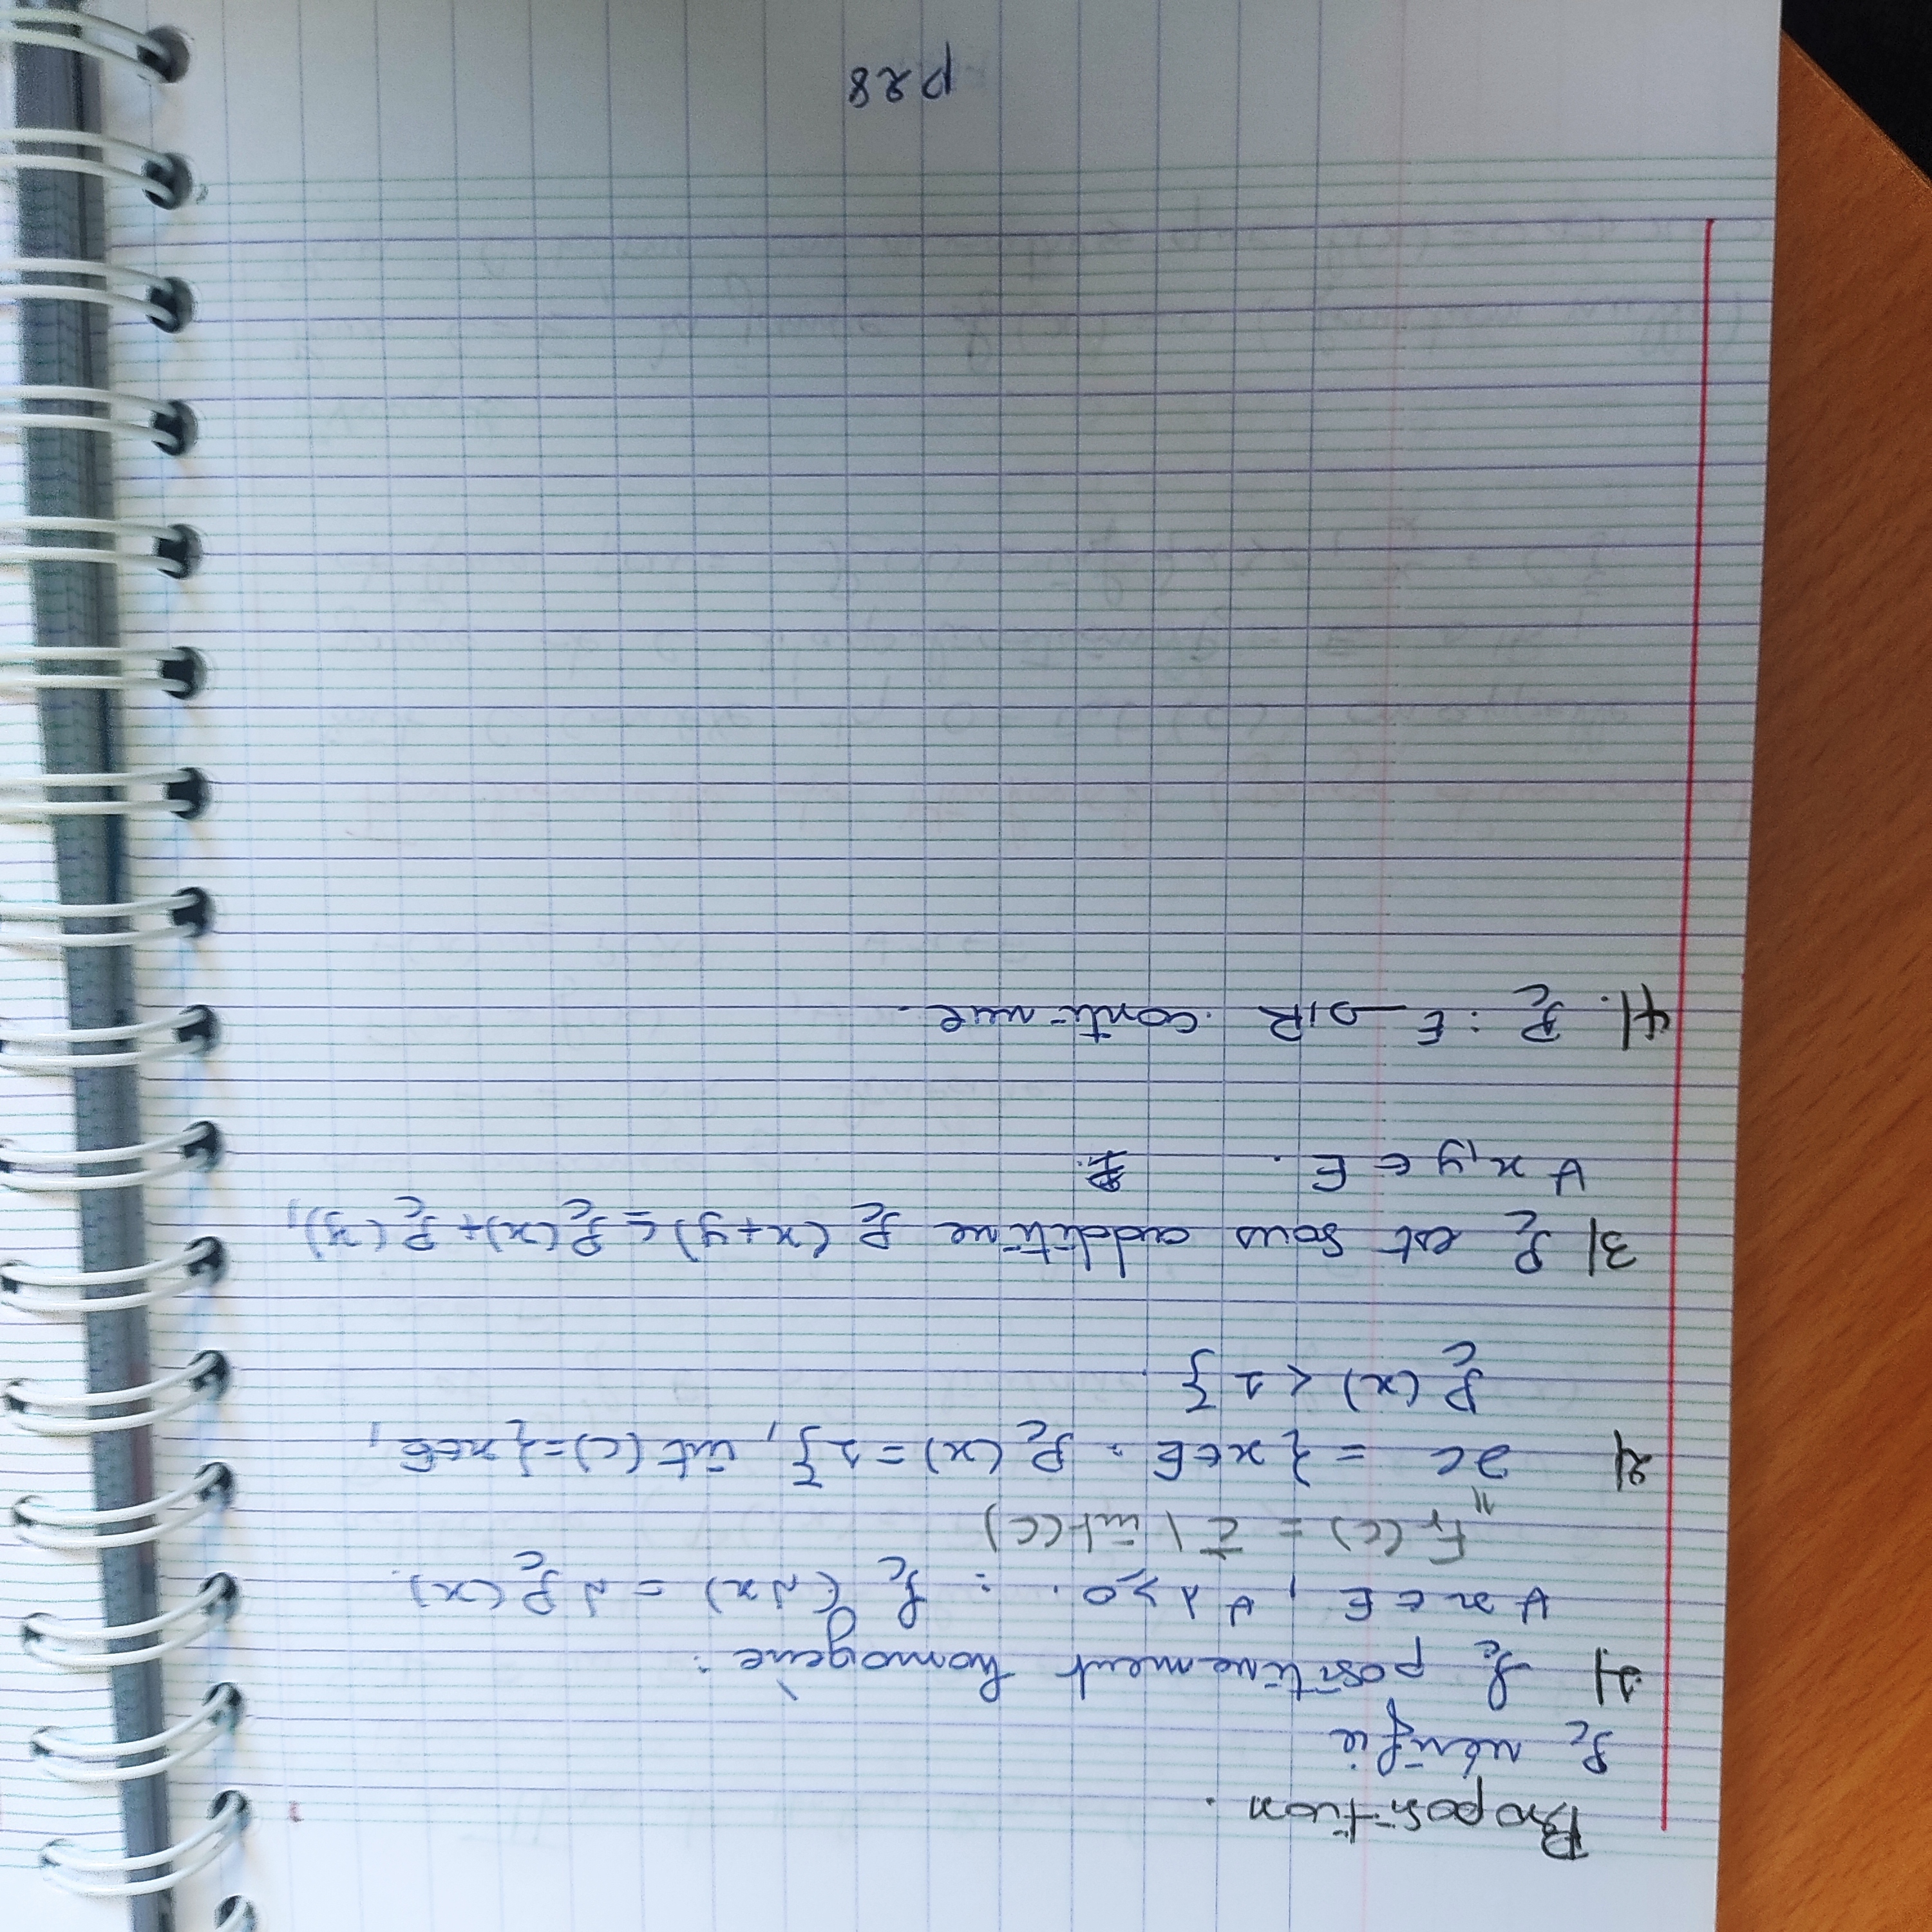 Proposition.
P_c vérifie
1) P_c positivement homogène :
∀ x ∈ E, ∀ λ ≥ 0. : P_c (λx) = λ P_c (x).
Fr (C) = C̄ \ int (C)
=
2) ∂C = { x ∈ E : P_c (x) = 1 }, int (C) = { x ∈ E,
P_c (x) < 1 }.
3) P_c est sous additive P_c (x+y) ≤ P_c (x) + P_c (y),
∀ x, y ∈ E.
4). P_c : E → ℝ continue.
p 28